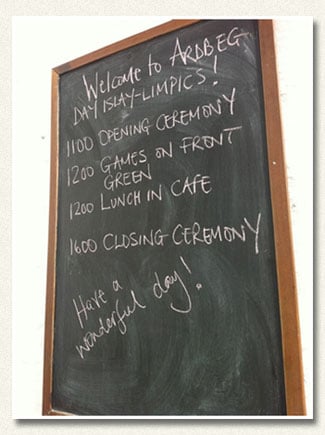 Welcome to ARDBEG
DAY ISLAY-LIMPICS!
1100 OPENING CEREMONY
1200 GAMES ON FRONT
GREEN
1200 LUNCH IN CAFE
1600 CLOSING CEREMONY
Have a
wonderful day!